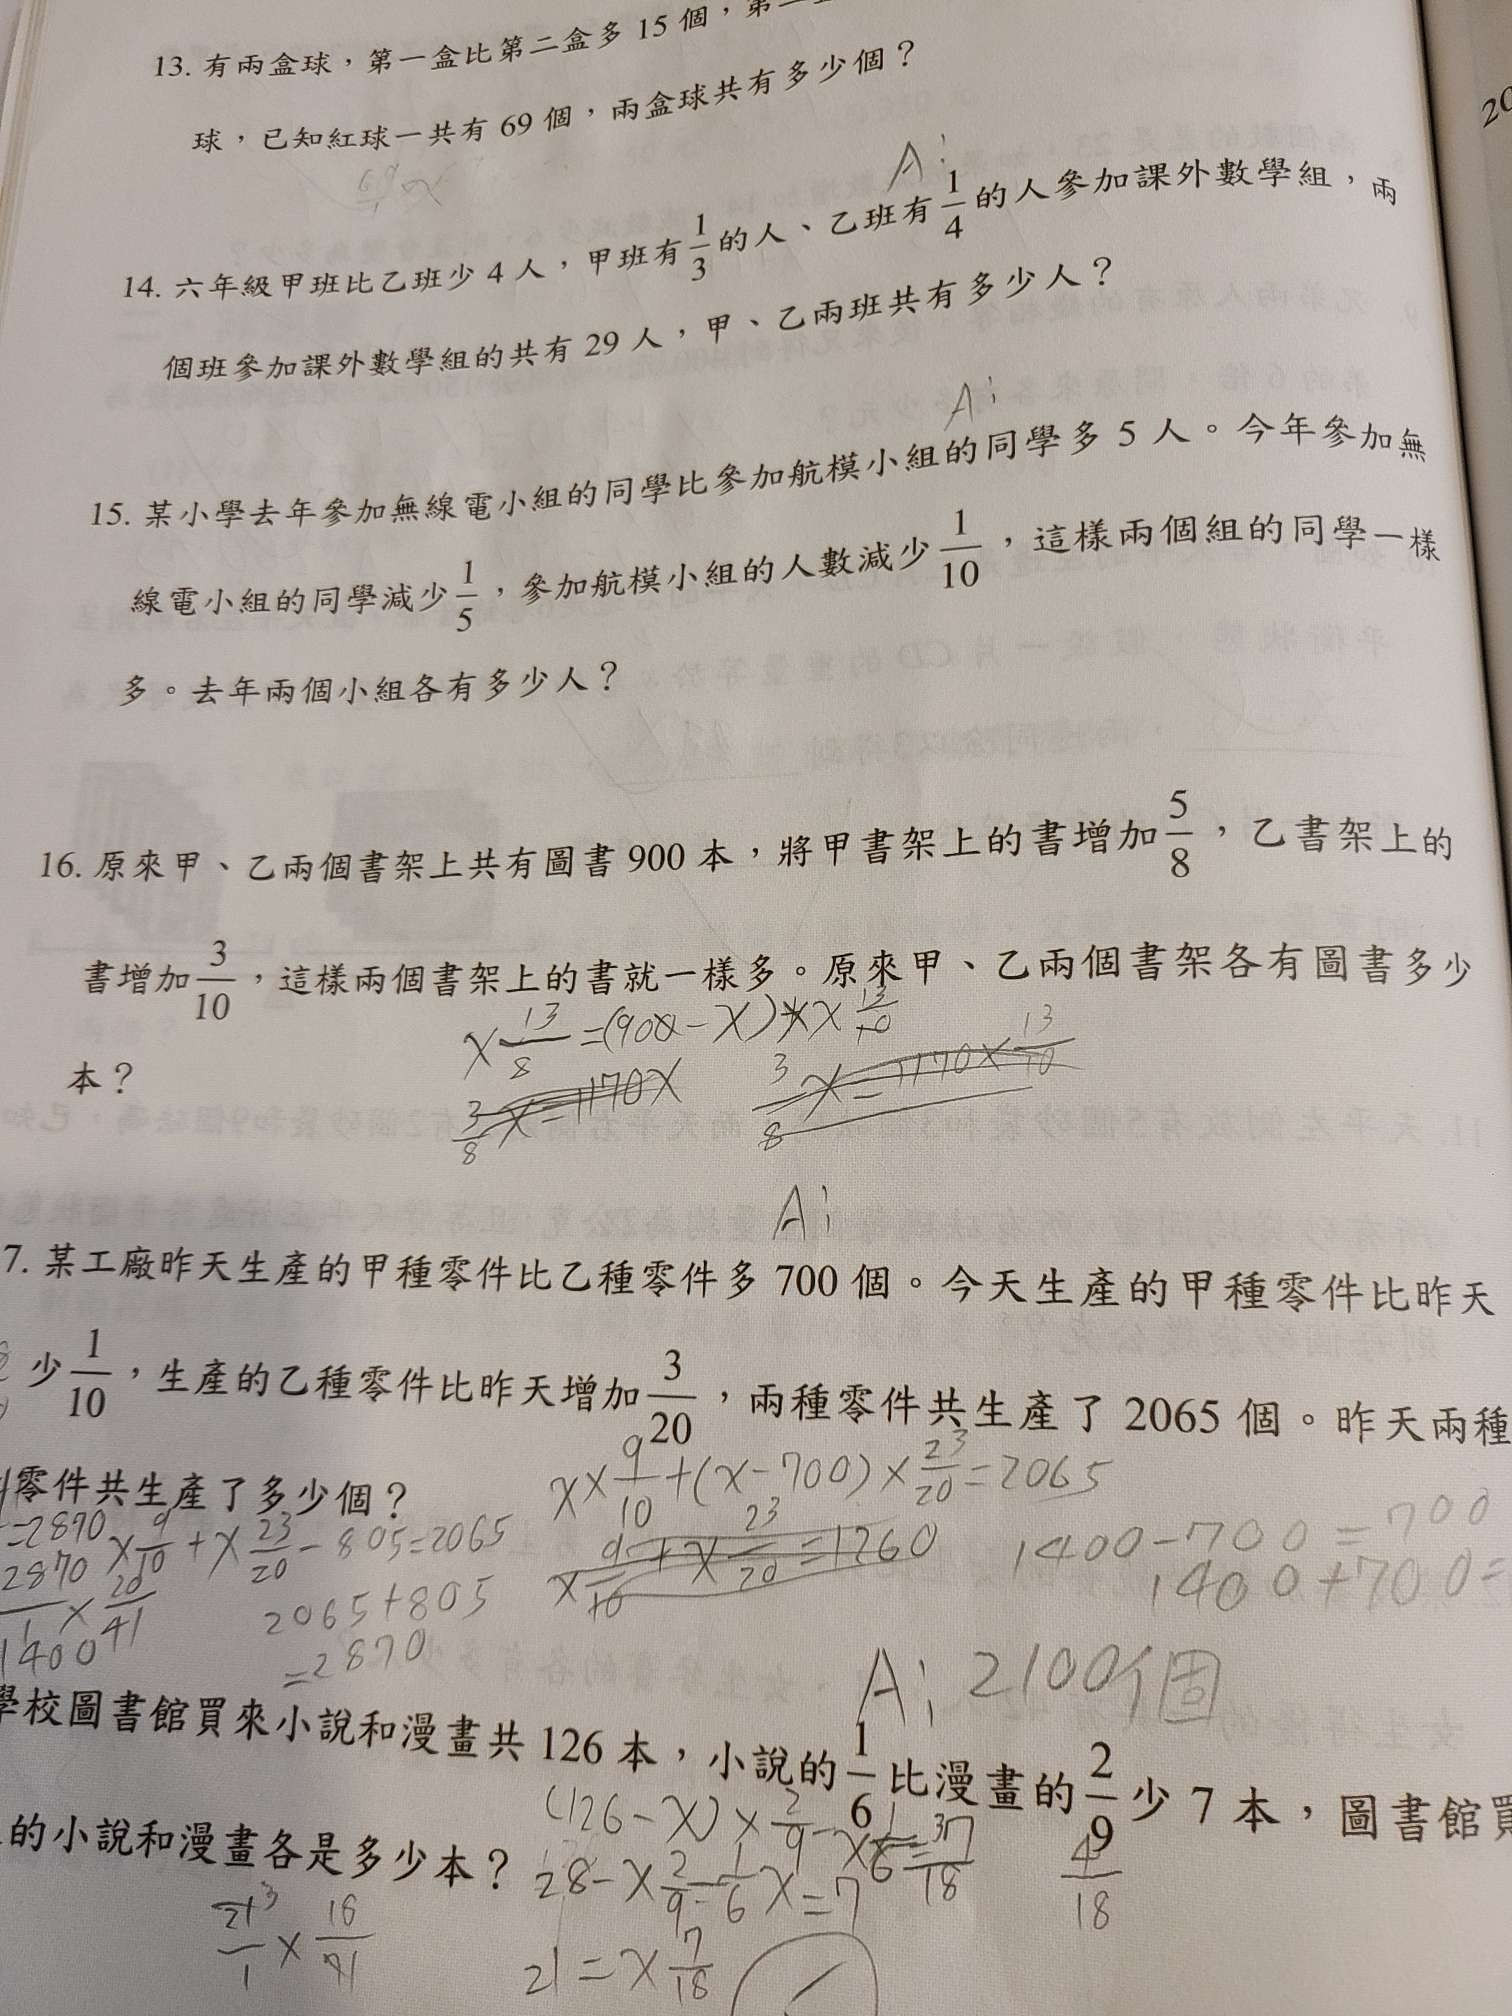 13. 有兩盒球，第一盒比第二盒多 15 個，第
球，已知紅球一共有 69 個，兩盒球共有多少個？
A:
14. 六年級甲班比乙班少 4 人，甲班有1/3的人、乙班有1/4的人參加課外數學組，兩
個班參加課外數學組的共有 29 人，甲、乙兩班共有多少人？
A:
15. 某小學去年參加無線電小組的同學比參加航模小組的同學多 5 人。今年參加無
線電小組的同學減少1/5，參加航模小組的人數減少1/10，這樣兩個組的同學一樣
多。去年兩個小組各有多少人？
16. 原來甲、乙兩個書架上共有圖書 900 本，將甲書架上的書增加5/8，乙書架上的
書增加3/10，這樣兩個書架上的書就一樣多。原來甲、乙兩個書架各有圖書多少
本？
x 13/8 = (900 - x) × 13/10
3/8 x = 1170x
3/8 x = 1170 × 13/10
A:
7. 某工廠昨天生產的甲種零件比乙種零件多 700 個。今天生產的甲種零件比昨天
少1/10，生產的乙種零件比昨天增加3/20，兩種零件共生產了 2065 個。昨天兩種
零件共生產了多少個？
x × 9/10 + (x - 700) × 23/20 = 2065
=2870
x 9/10 + x 23/20 - 805 = 2065
x 9/10 + x 23/20 = 1260
1400 - 700 = 700
1400 + 700 =
2870/1 × 20/41
1400
2065 + 805
= 2870
A: 2100個
學校圖書館買來小說和漫畫共 126 本，小說的1/6比漫畫的2/9少 7 本，圖書館買
的小說和漫畫各是多少本？
(126 - x) × 2/9 - x 1/6 = 7
28 - x 2/9 - 1/6 x = 7
21 = x 7/18